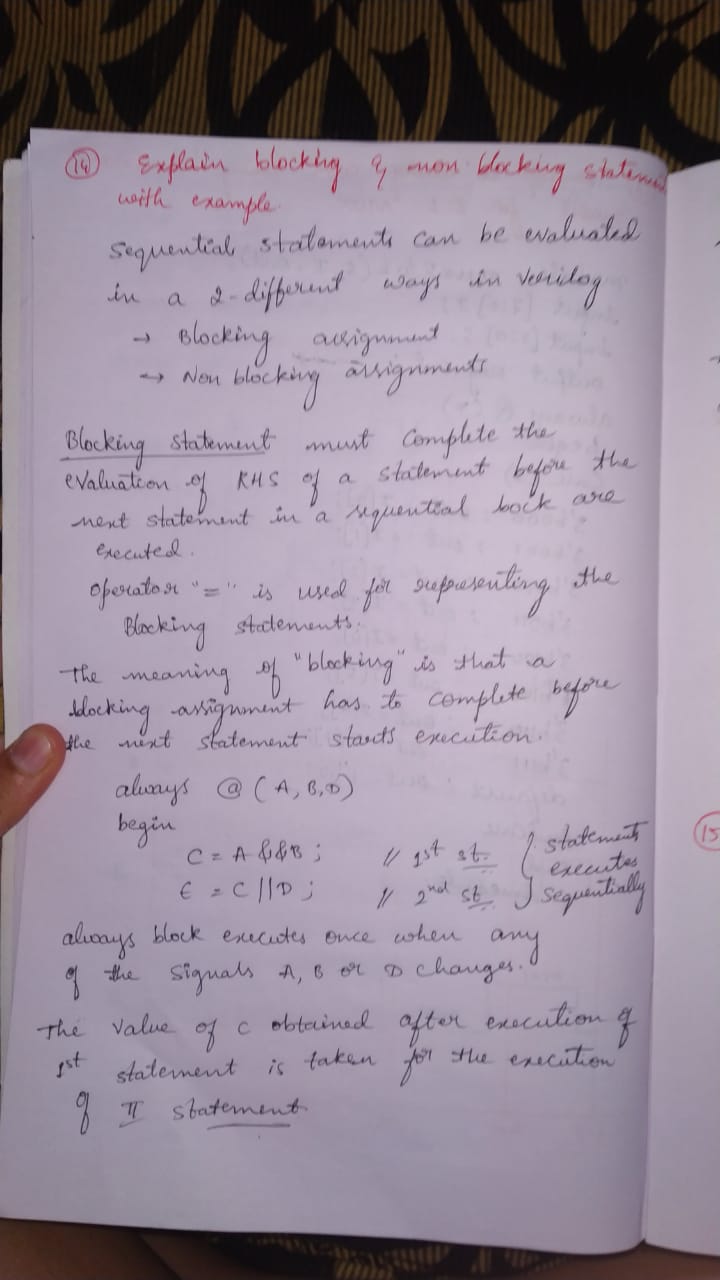 (14) Explain blocking & non blocking statemen
with example.
Sequential statements can be evaluated
in a 2-different ways in Verilog
→ Blocking assignment
→ Non blocking assignments
Blocking statement must complete the
evaluation of RHS of a statement before the
next statement in a sequential bock are
executed.
operator "=" is used for representing the
Blocking statements.
The meaning of "blocking" is that a
blocking assignment has to complete before
the next statement starts execution.
always @ (A, B, D)
begin
C = A && B ; // 1st st. } statements
executes
E = C || D ; // 2nd st } sequentially
always block executes once when any
of the signals A, B or D changes.
The value of C obtained after execution of
1st statement is taken for the execution
of II statement
(15